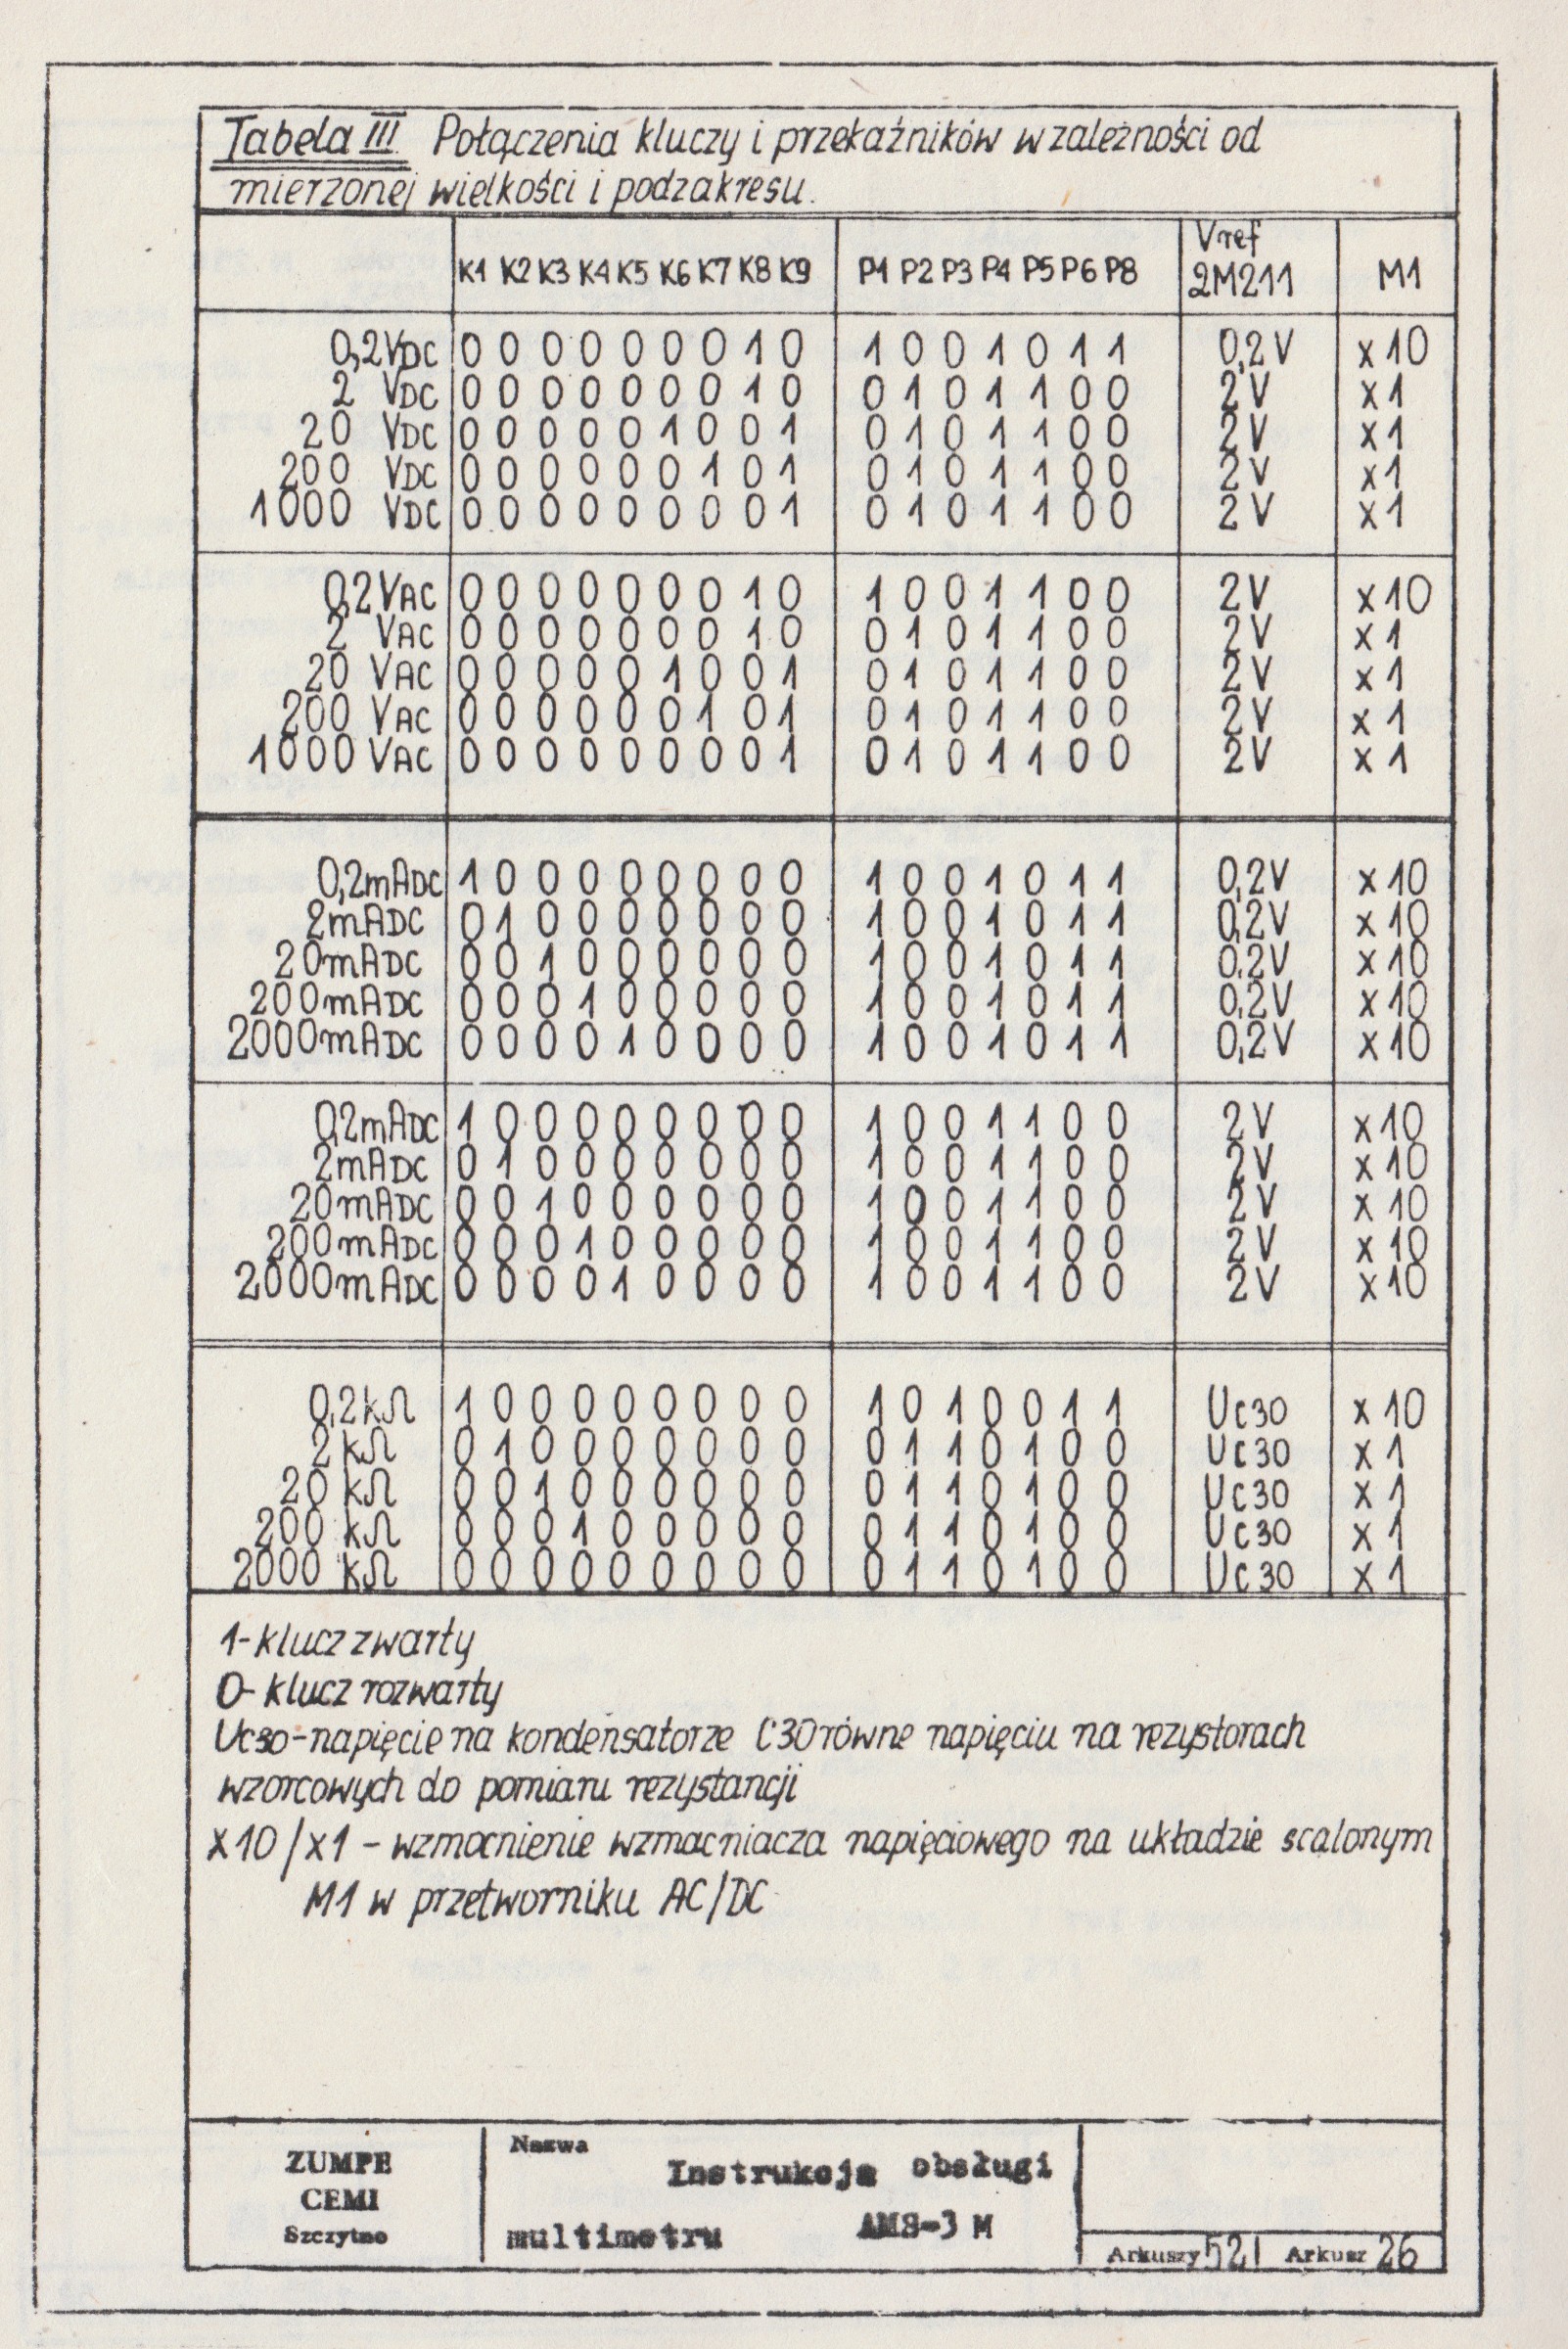 Tabela III. Połączenia kluczy i przekaźników w zależności od
mierzonej wielkości i podzakresu.
K1 K2 K3 K4 K5 K6 K7 K8 K9 P1 P2 P3 P4 P5 P6 P8 Vref 2M211 M1
0,2VDC 0 0 0 0 0 0 0 1 0 1 0 0 1 0 1 1 0,2V x10
2 VDC 0 0 0 0 0 0 0 1 0 0 1 0 1 1 0 0 2V x1
20 VDC 0 0 0 0 0 1 0 0 1 0 1 0 1 1 0 0 2V x1
200 VDC 0 0 0 0 0 0 1 0 1 0 1 0 1 1 0 0 2V x1
1000 VDC 0 0 0 0 0 0 0 0 1 0 1 0 1 1 0 0 2V x1
0,2VAC 0 0 0 0 0 0 0 1 0 1 0 0 1 1 0 0 2V x10
2 VAC 0 0 0 0 0 0 0 1 0 0 1 0 1 1 0 0 2V x1
20 VAC 0 0 0 0 0 1 0 0 1 0 1 0 1 1 0 0 2V x1
200 VAC 0 0 0 0 0 0 1 0 1 0 1 0 1 1 0 0 2V x1
1000 VAC 0 0 0 0 0 0 0 0 1 0 1 0 1 1 0 0 2V x1
0,2mADC 1 0 0 0 0 0 0 0 0 1 0 0 1 0 1 1 0,2V x10
2mADC 0 1 0 0 0 0 0 0 0 1 0 0 1 0 1 1 0,2V x10
20mADC 0 0 1 0 0 0 0 0 0 1 0 0 1 0 1 1 0,2V x10
200mADC 0 0 0 1 0 0 0 0 0 1 0 0 1 0 1 1 0,2V x10
2000mADC 0 0 0 0 1 0 0 0 0 1 0 0 1 0 1 1 0,2V x10
0,2mADC 1 0 0 0 0 0 0 0 0 1 0 0 1 1 0 0 2V x10
2mADC 0 1 0 0 0 0 0 0 0 1 0 0 1 1 0 0 2V x10
20mADC 0 0 1 0 0 0 0 0 0 1 0 0 1 1 0 0 2V x10
200mADC 0 0 0 1 0 0 0 0 0 1 0 0 1 1 0 0 2V x10
2000mADC 0 0 0 0 1 0 0 0 0 1 0 0 1 1 0 0 2V x10
0,2kΩ 1 0 0 0 0 0 0 0 0 1 0 1 0 0 1 1 Uc30 x10
2kΩ 0 1 0 0 0 0 0 0 0 0 1 1 0 1 0 0 Uc30 x1
20 kΩ 0 0 1 0 0 0 0 0 0 0 1 1 0 1 0 0 Uc30 x1
200 kΩ 0 0 0 1 0 0 0 0 0 0 1 1 0 1 0 0 Uc30 x1
2000 kΩ 0 0 0 0 0 0 0 0 0 0 1 1 0 1 0 0 Uc30 x1
1-klucz zwarty
0-klucz rozwarty
Uc30-napięcie na kondensatorze C30 równe napięciu na rezystorach
wzorcowych do pomiaru rezystancji
x10/x1 - wzmocnienie wzmacniacza napięciowego na układzie scalonym
M1 w przetworniku AC/DC
ZUMPE
CEMI
Szczytno
Nazwa
Instrukcja obsługi
multimetru AMS-3 M
Arkuszy 52 Arkusz 26